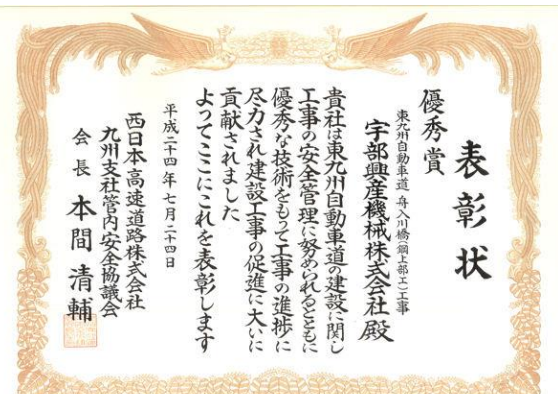 表彰状
優秀賞
東九州自動車道 舟入川橋(鋼上部工)工事
宇部興産機械株式会社殿
貴社は東九州自動車道の建設に関し
工事の安全管理に努められるとともに
優秀な技術をもって工事の進捗に
尽力され建設工事の促進に大いに
貢献されました
よってここにこれを表彰します
平成二十四年七月二十四日
西日本高速道路株式会社
九州支社管内安全協議会
会長 本間清輔